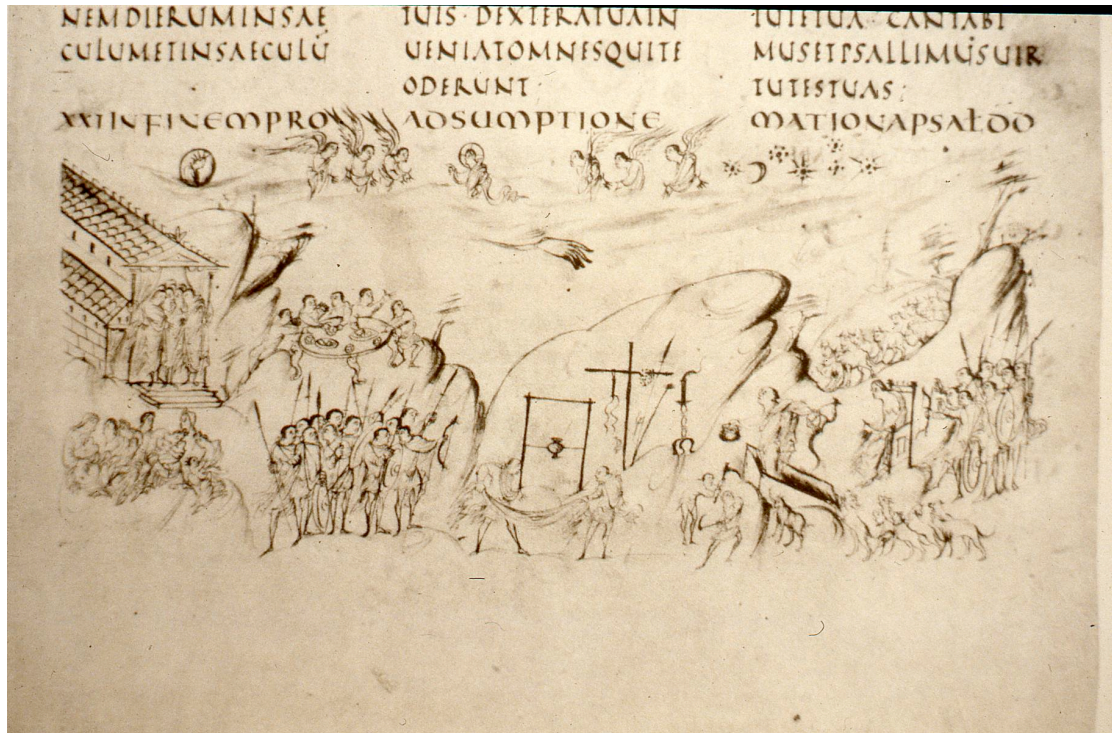 NEMDIERUMINSAE
CULUMETINSAECULŪ
TUIS · DEXTERATUAIN
UENIATOMNESQUITE
ODERUNT·
TUTETUA · CANTABI
MUSETPSALLIMUSUIR
TUTESTUAS;
XXIINFINEMPRO ADSUMPTIONE MATIONAPSAŁDD